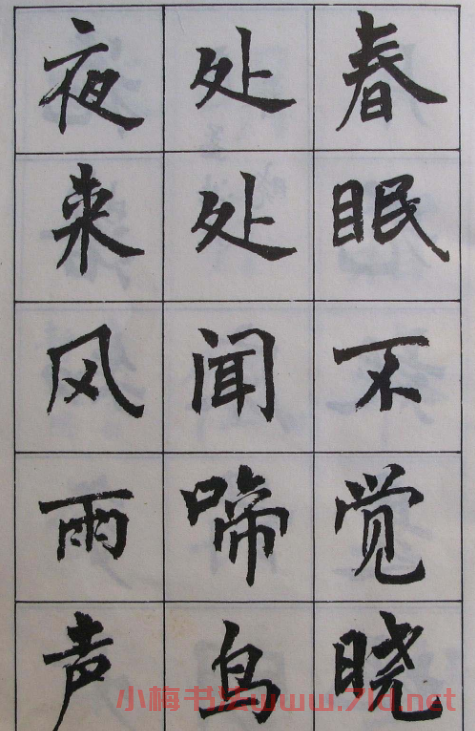 春眠不觉晓
处处闻啼鸟
夜来风雨声
小梅书法www.7ld.net